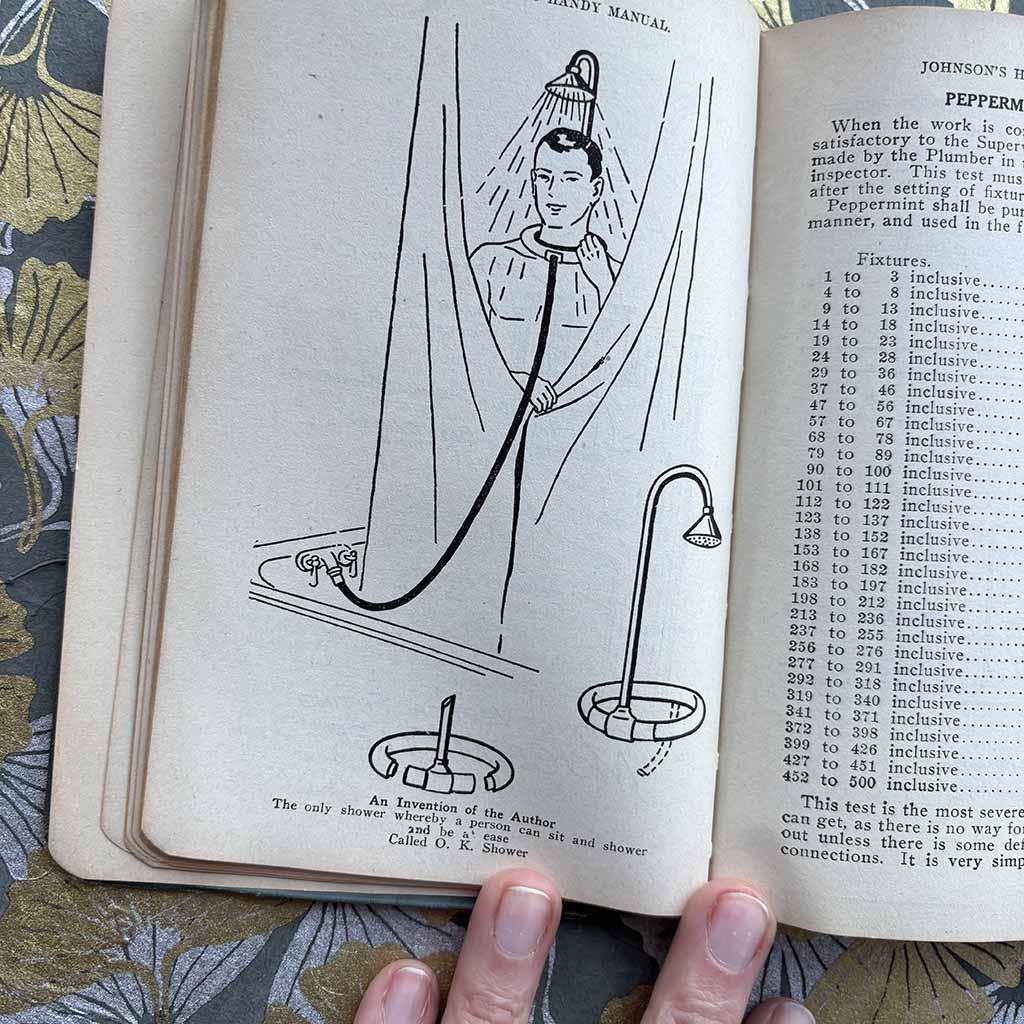 HANDY MANUAL.
An Invention of the Author
The only shower whereby a person can sit and shower
and be at ease
Called O. K. Shower
JOHNSON'S H
PEPPERM
When the work is co
satisfactory to the Superv
made by the Plumber in
inspector. This test mus
after the setting of fixtur
Peppermint shall be pu
manner, and used in the f
Fixtures.
1 to 3 inclusive.....
4 to 8 inclusive.....
9 to 13 inclusive.....
14 to 18 inclusive.....
19 to 23 inclusive.....
24 to 28 inclusive.....
29 to 36 inclusive.....
37 to 46 inclusive.....
47 to 56 inclusive.....
57 to 67 inclusive.....
68 to 78 inclusive.....
79 to 89 inclusive.....
90 to 100 inclusive.....
101 to 111 inclusive.....
112 to 122 inclusive.....
123 to 137 inclusive.....
138 to 152 inclusive.....
153 to 167 inclusive.....
168 to 182 inclusive.....
183 to 197 inclusive.....
198 to 212 inclusive.....
213 to 236 inclusive.....
237 to 255 inclusive.....
256 to 276 inclusive.....
277 to 291 inclusive.....
292 to 318 inclusive.....
319 to 340 inclusive.....
341 to 371 inclusive.....
372 to 398 inclusive.....
399 to 426 inclusive.....
427 to 451 inclusive.....
452 to 500 inclusive.....
This test is the most severe
can get, as there is no way for
out unless there is some def
connections. It is very simp